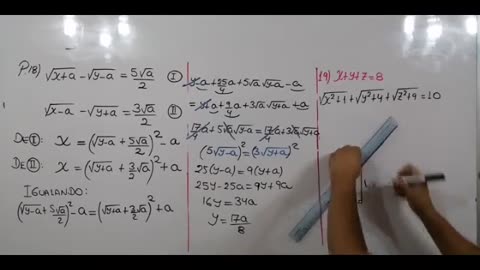 P18) √x+a - √y-a = 5√a/2 (I)
√x-a - √y+a = 3√a/2 (II)
DE (I): x = (√y-a + 5√a/2)² - a
DE (II): x = (√y+a + 3/2 √a)² + a
IGUALANDO:
(√y-a + 5√a/2)² - a = (√y+a + 3√a/2)² + a
y-a + 25a/4 + 5√a √y-a - a
= y+a + 9a/4 + 3√a √y+a + a
17a/4 + 5√a √y-a = 17a/4 + 3√a √y+a
(5√y-a)² = (3√y+a)²
25(y-a) = 9(y+a)
25y - 25a = 9y + 9a
16y = 34a
y = 17a/8
19) x+y+z = 8
√x²+1 + √y²+4 + √z²+9 = 10